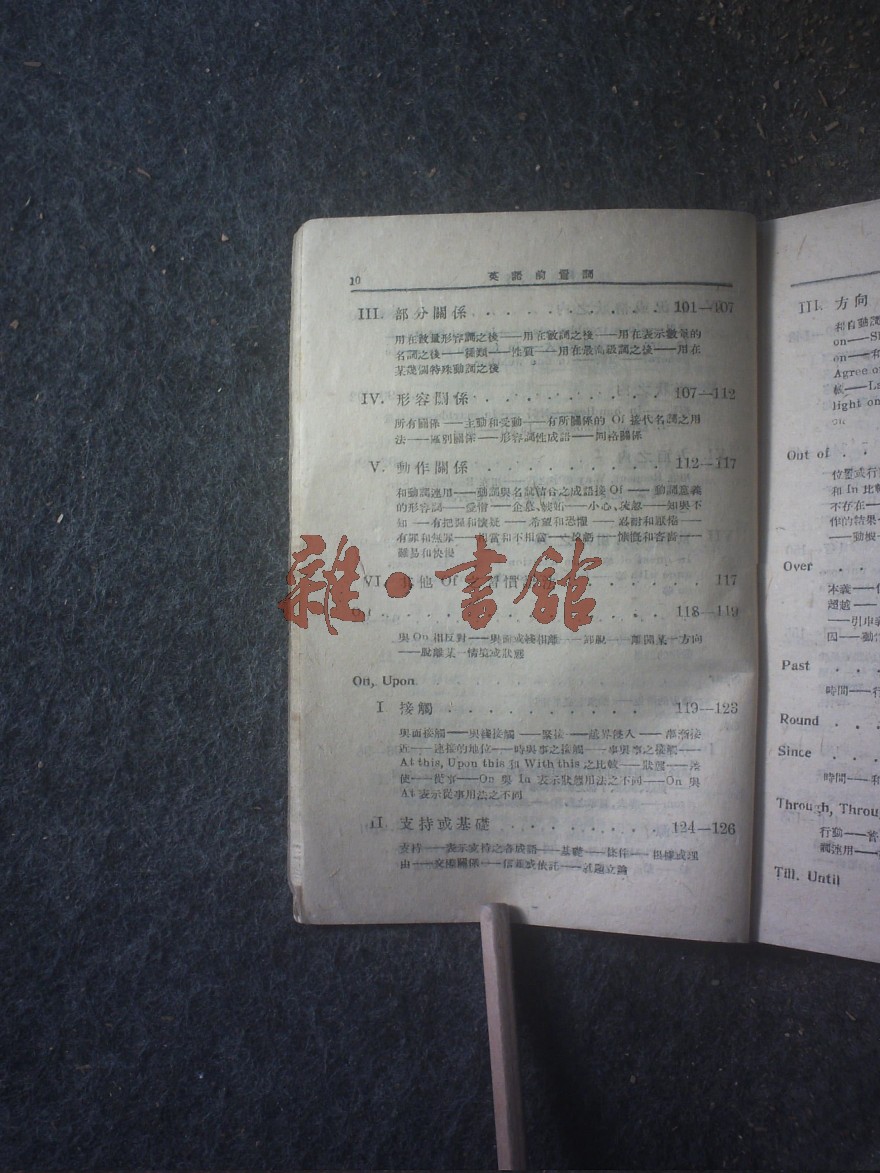 10 英語前置詞
III. 部分關係 101—107
用在數量形容詞之後——用在數詞之後——用在表示數量的
名詞之後——種類——性質——用在最高級詞之後——用在
某幾個特殊動詞之後
IV. 形容關係 107—112
所有關係——主動和受動——有所關係的 Of 接代名詞之用
法——區別關係——形容詞性成語——同格關係
V. 動作關係 112—117
和動詞連用——動詞與名詞結合之成語接 Of——動詞意義
的形容詞——愛惜——企慕、嫉妬——小心、疏忽——知與不
知——有把握和懷疑——希望和恐懼——忍耐和厭倦——
有罪和無罪——相當和不相當——慷慨和吝嗇——
難易和快慢
VI. 其他 Of 習慣 117
118—119
與 On 相反對——與面或綫相離——卸脫——離開某一方向
——脫離某一情境或狀態
On, Upon
I 接觸 119—123
與面接觸——與綫接觸——緊接——越界侵入——漸漸接
近——連接的地位——時與事之接觸——事與事之接觸——
At this, Upon this 和 With this 之比較——狀態——差
使——從事——On 與 In 表示狀態用法之不同——On 與
At 表示從事用法之不同
II 支持或基礎 124—126
支持——表示支持之各成語——基礎——條件——根據或理
由——交換關係——信蓋或依託——話題立論
雜·書館
III. 方向
利自動詞
on—
on—和
Agree of
light on
on
Out of
位置或行
和 In 比較
不存在—
作的結果
——動被
Over
本義——
超越——
——引申義
四——動
Past
時間——行
Round
Since
時間——和
Through, Throu
行動——
詞連用——
Till, Until